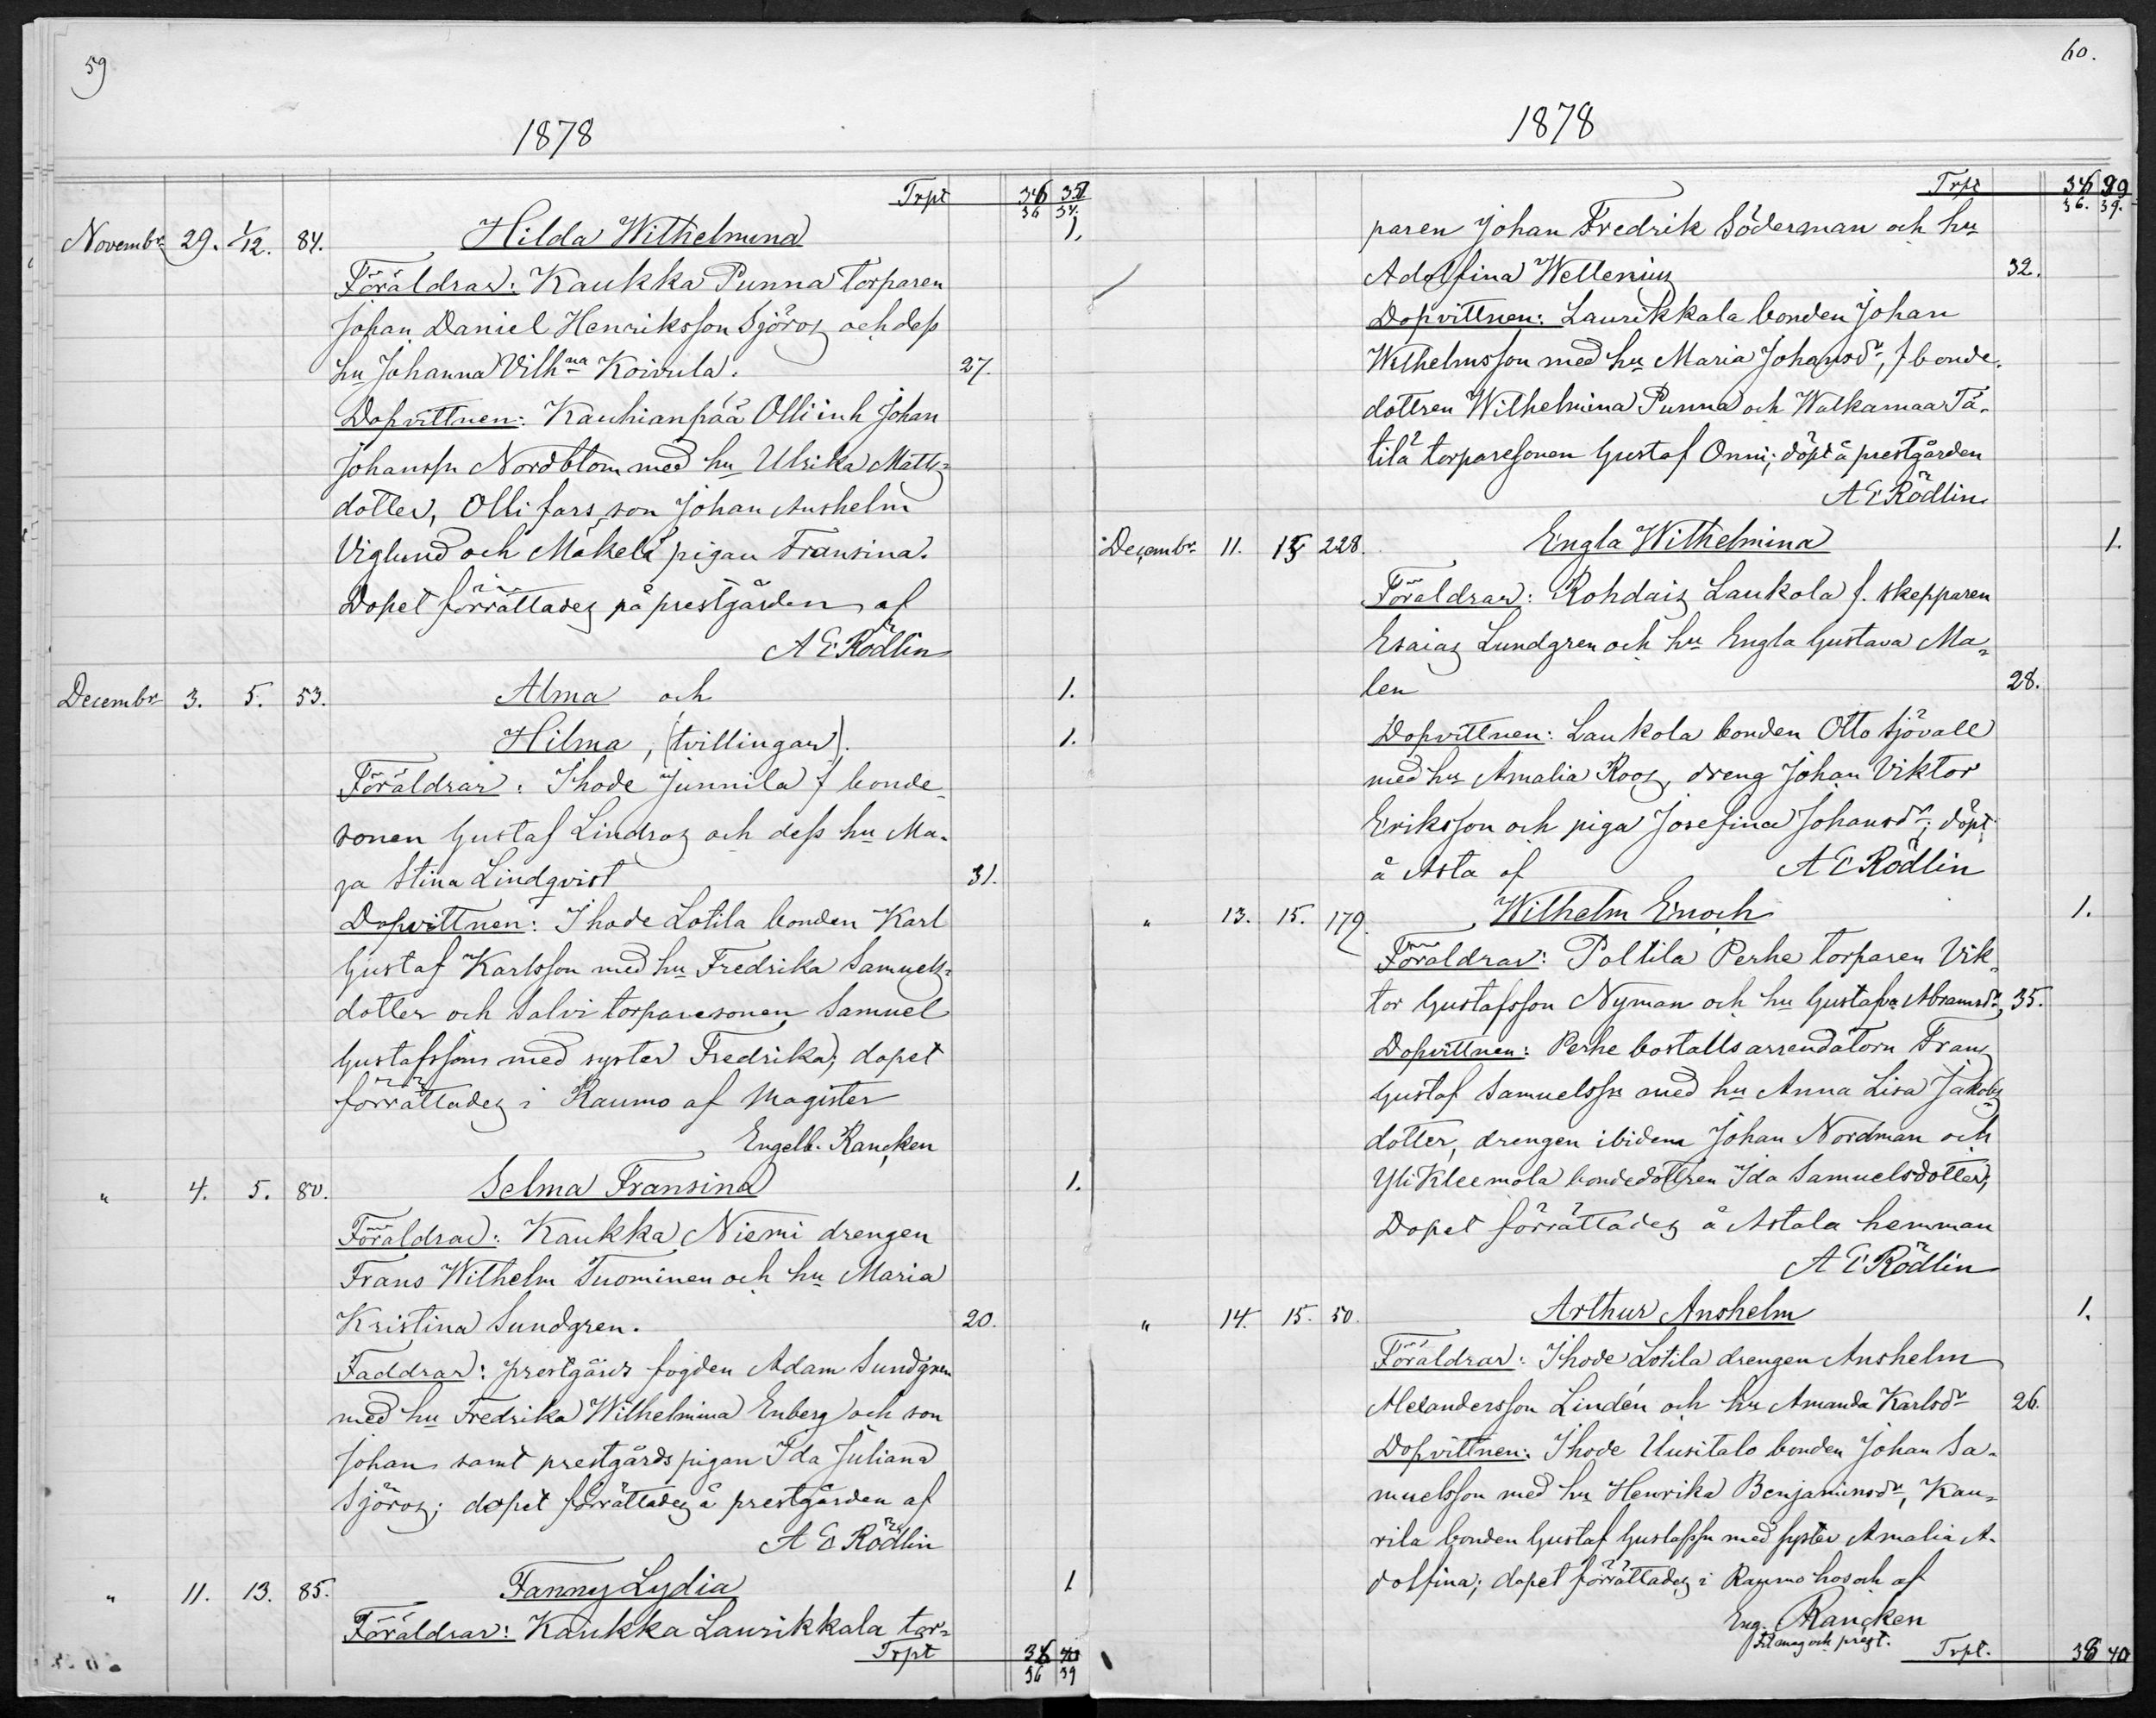 59
1878
Trpt
36 34.
Novembr 29. 1/12. 84. Hilda Wilhelmina 1.
Föräldrar: Kaukka Punna torparen
Johan Daniel Henriksson Sjöros och dess
hu Johanna Vilhna Koivula. 27.
Dopvittnen: Kauhianpää Olli inh Johan
Johanssn Nordblom med hu Ulrika Matts-
dotter, Olli fars son Johan Anshelm
Viglund och Mäkelä pigan Fransina.
Dopet förrättades på prestgården af
A E Rödlin
Decembr 3. 5. 53. Alma och 1.
Hilma, (tvillingar). 1.
Föräldrar: Ihode Junnila f bonde-
sonen Gustaf Lindros och dess hu Ma-
ja Stina Lindqvist 31.
Dopvittnen: Ihode Lotila bonden Karl
Gustaf Karlsson med hu Fredrika Samuels-
dotter och Salvi torparesonen Samuel
Gustafsson med syster Fredrika; dopet
förrättades i Raumo af Magister
Engelb. Rancken
" 4. 5. 80. Selma Fransina 1.
Föräldrar: Kaukka Niemi drengen
Frans Wilhelm Tuominen och hu Maria
Kristina Sundgren. 20.
Faddrar: prestgårds fogden Adam Sundgren
med hu Fredrika Wilhelmina Enberg och son
Johan samt prestgårds pigan Ida Juliana
Sjöros; dopet förrättades å prestgården af
A E Rödlin
" 11. 13. 85. Fanny Lydia 1
Föräldrar: Kaukka Laurikkala tor-
Trpt
36 39
60.
1878
Trpt
36. 39.
paren Johan Fredrik Söderman och hu
Adolfina Wellenius 32.
Dopvittnen: Laurikkala bonden Johan
Wilhelmsson med hu Maria Johansdr, f bonde-
dottren Wilhelmina Punna och Walkamaa Tä-
tilä torparesonen Gustaf Onni; döpt å prestgården
A E Rödlin
Decembr 11. 15 228. Engla Wilhelmina 1.
Föräldrar: Rohdais Laukola f. skepparen
Esaias Lundgren och hu Engla Gustava Ma-
len 28.
Dopvittnen: Laukola bonden Otto Sjövall
med hu Amalia Roos, dreng Johan Viktor
Eriksson och piga Josefina Johansdr; döpt
å Asta af A E Rödlin
" 13. 15. 179. Wilhelm Enoch 1.
Föräldrar: Poltila Perhe torparen Vik-
tor Gustafsson Nyman och hu Gustafva Abramsdr, 35.
Dopvittnen: Perhe bostalls arrendatorn Frans
Gustaf Samuelssn med hu Anna Lisa Jakobs
dotter, drengen ibidem Johan Nordman och
Yli Kleemola bondedottren Ida Samuelsdotter,
Dopet förrättades å Astala hemman
A E Rödlin
" 14. 15. 50. Arthur Anshelm 1.
Föräldrar: Ihode Lotila drengen Anshelm
Alexandersson Lindén och hu Amanda Karlsdr 26.
Dopvittnen: Ihode Uusitalo bonden Johan Sa-
muelsson med hu Henrika Benjaminsdr, Kau-
rila bonden Gustaf Gustafssn med syster Amalia A-
dolfina; dopet förrättades i Raumo hos och af
Eng. Rancken
Fil mag och prest.
Trpt. 36 40